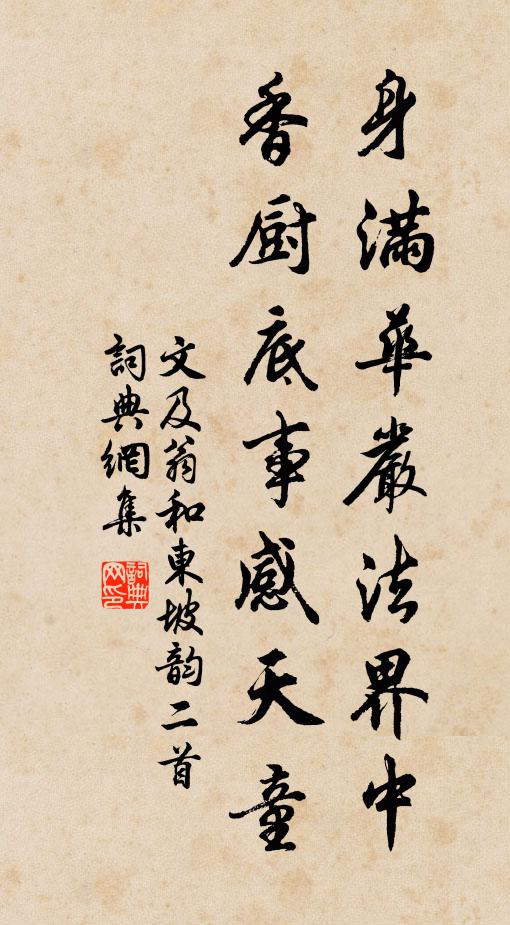 身滿華嚴法界中
香厨底事感天童
文及翁和東坡韵二首
詞典網集
詞典網印